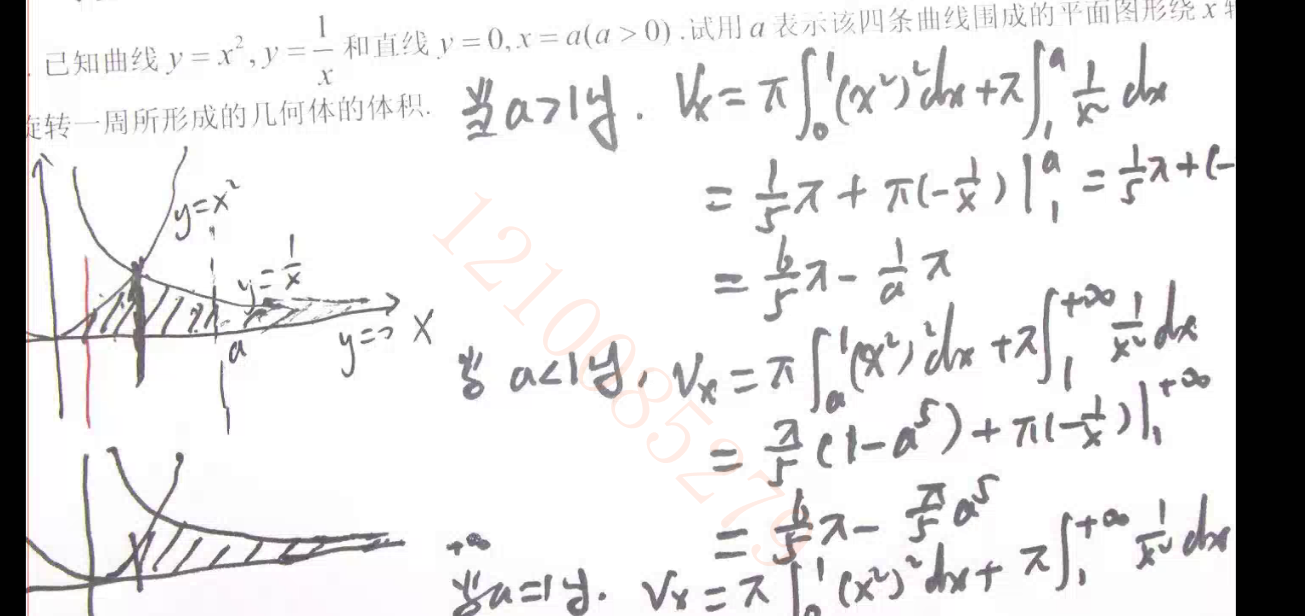 已知曲线 y = x², y = 1/x 和直线 y = 0, x = a(a > 0). 试用 a 表示该四条曲线围成的平面图形绕 x 转
旋转一周所形成的几何体的体积.
当a>1时. Vx = π∫₀¹(x²)²dx + π∫₁ᵃ 1/x² dx
= 1/5 π + π(-1/x)|₁ᵃ = 1/5 π + (-
= 6/5 π - 1/a π
当 a<1时. Vx = π∫ₐ¹(x²)²dx + π∫₁^{+∞} 1/x² dx
= π/5 (1-a⁵) + π(-1/x)|₁^{+∞}
= 6/5 π - π/5 a⁵
+∞
当a=1时. Vx = π∫₀¹(x²)²dx + π∫₁^{+∞} 1/x² dx
y=x²
y=1/x
a
y=0
X
1210085279